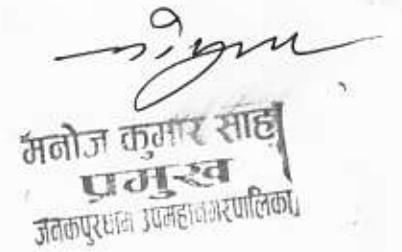 मनोज कुमार साह
प्रमुख
जनकपुरधाम उपमहानगरपालिका